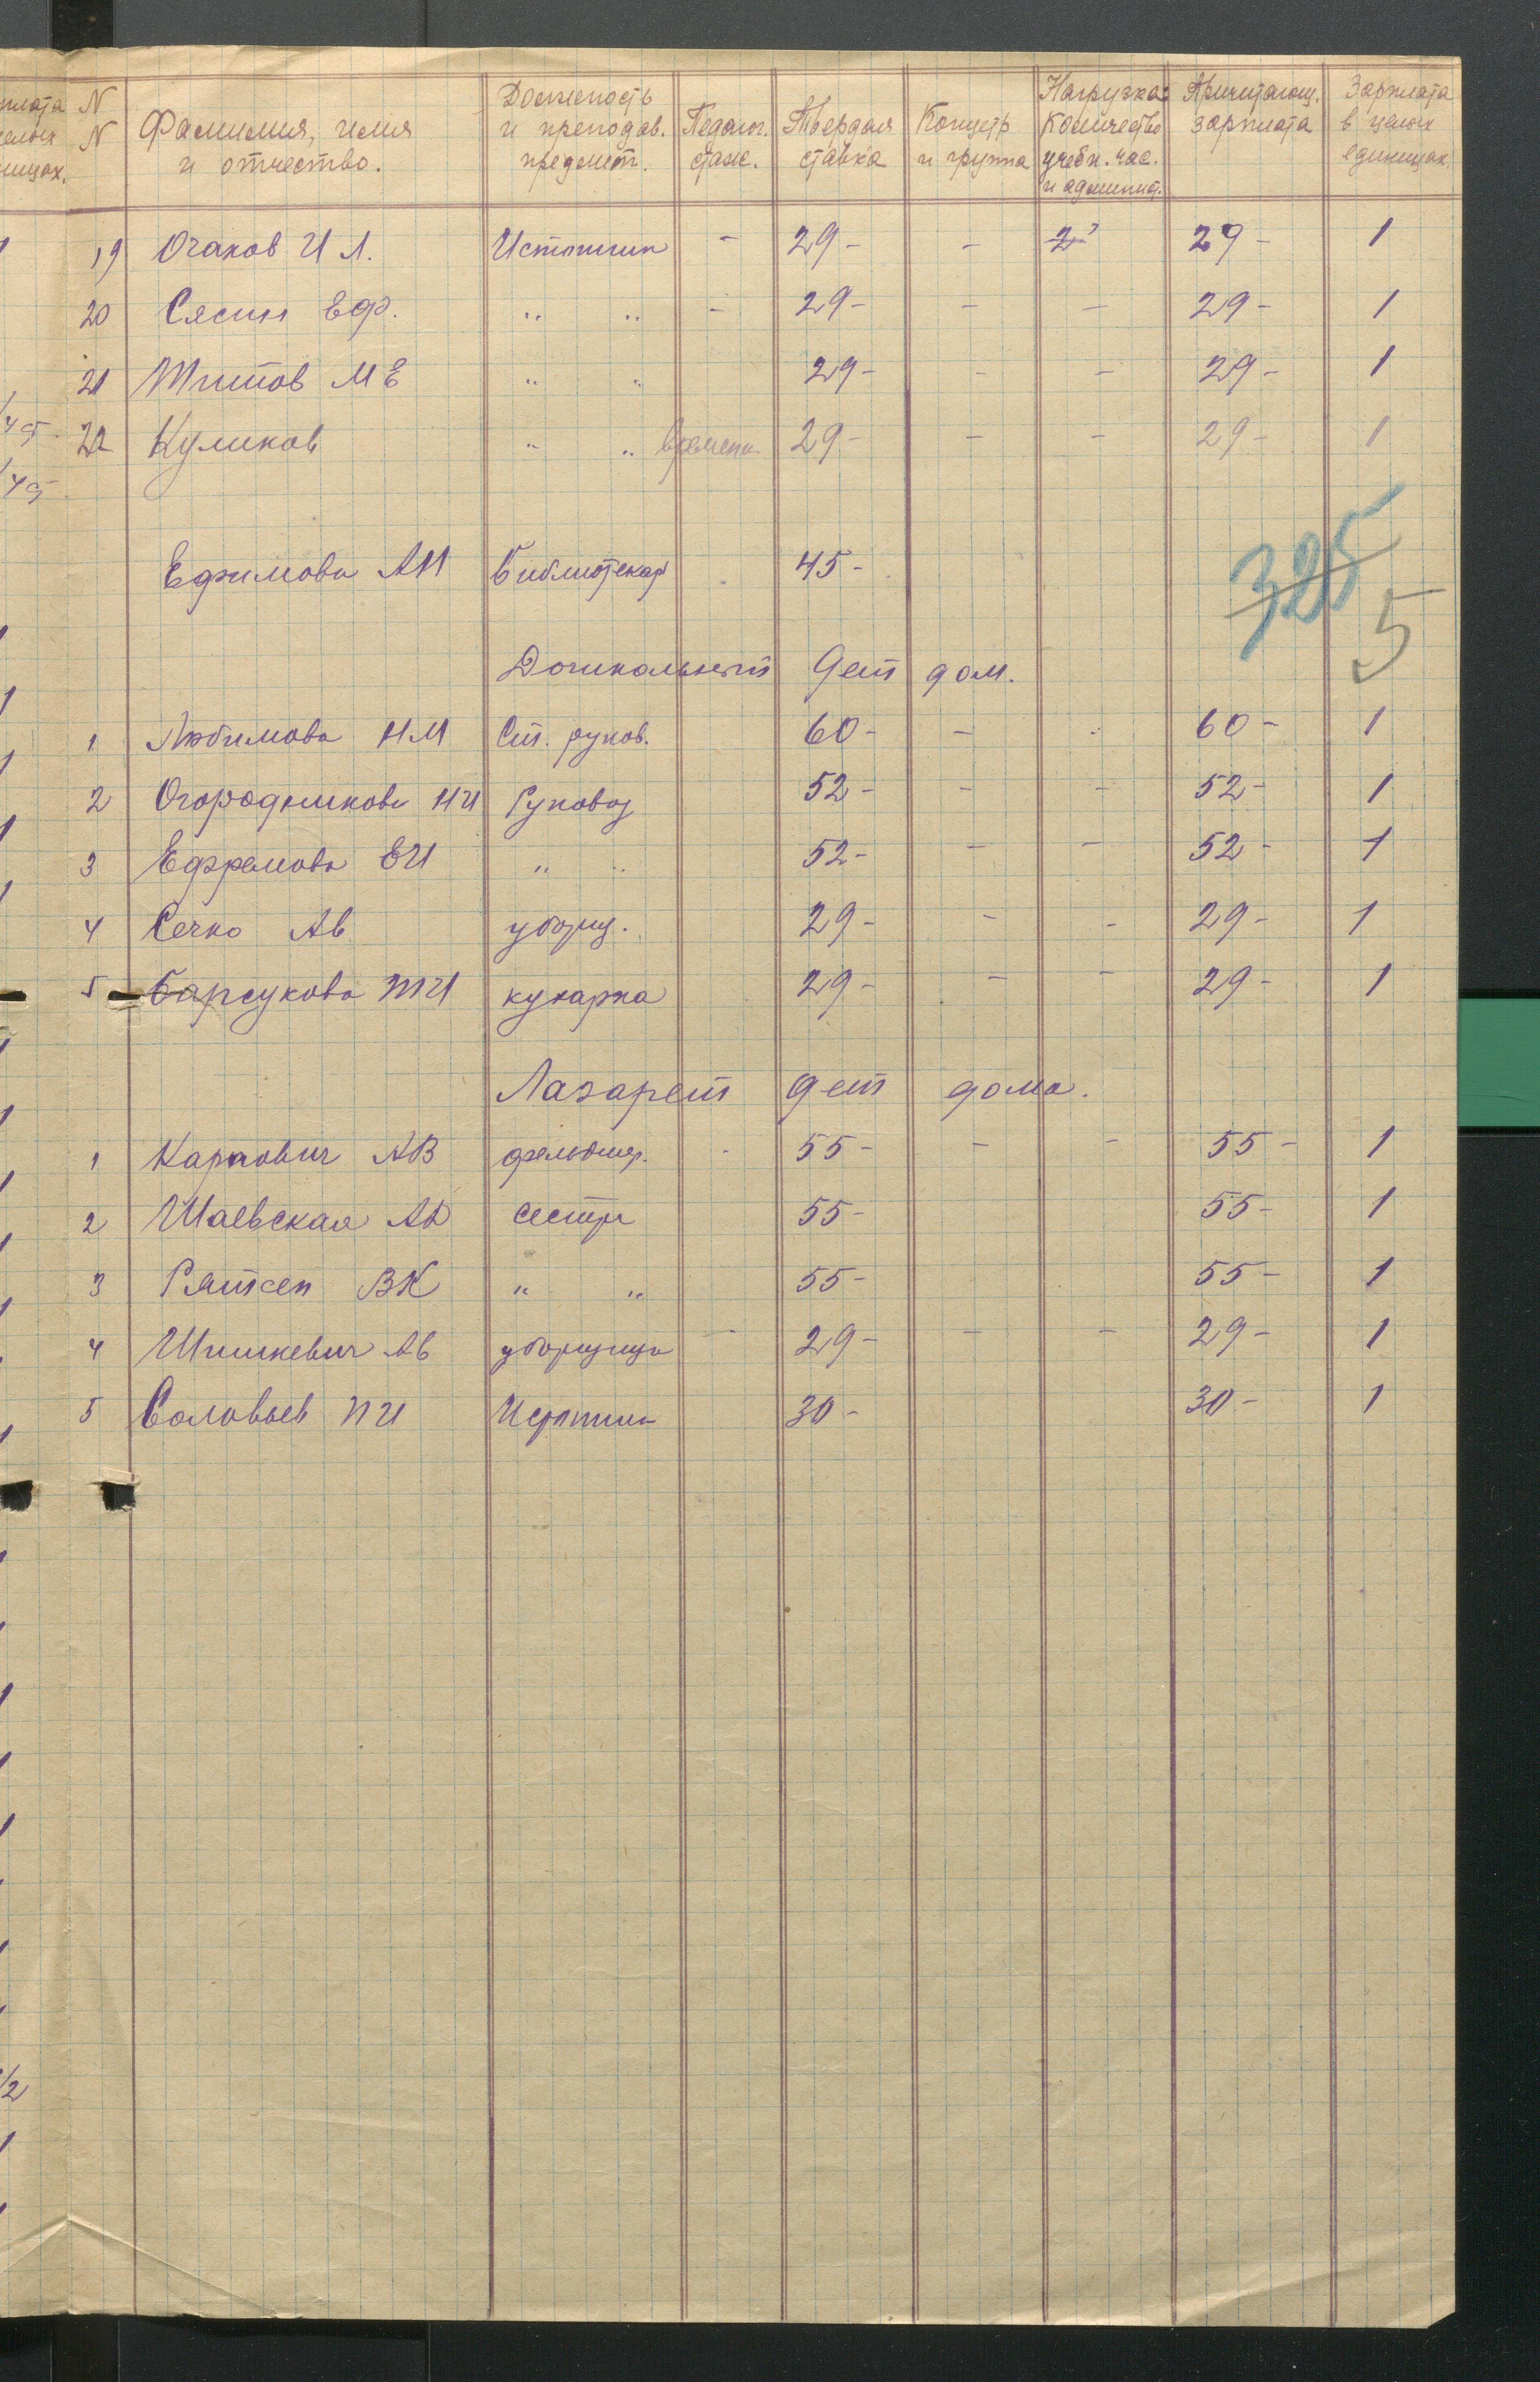 N N Фамилия, имя и отчество. Должность и преподав. предмет. Педагог. стаж. Твердая ставка Концетр и группа Нагрузка: количество учебн. час. и админист. Причитающ. зарплата Зарплата в целых единицах.
19 Очаков И Л. Истопник - 29- - 2 29- 1
20 Сясин Еф. " " - 29- - - 29- 1
21 Титов М Е " " 29- - - 29- 1
22 Куликов " " времен 29- - - 29- 1
Ефимова АН библиотекар 45-
325
5
Дошкольный Дет дом.
1 Любимова НМ Ст. руков. 60- - - 60- 1
2 Огородникова НИ Руковод 52- - - 52- 1
3 Ефремова ЕИ " " 52- - - 52- 1
4 Сечко Ав уборщ. 29- - - 29- 1
5 Барсукова ТИ кухарка 29- - - 29- 1
Лазарет дет дома.
1 Карпович АВ фельдшер. - 55- - - 55- 1
2 Шаевская АД сестра 55- 55- 1
3 ВК " " 55- 55- 1
4 Шишкевич Ав уборщица - 29- - - 29- 1
5 Соловьев ПИ Истопник 30- 30- 1